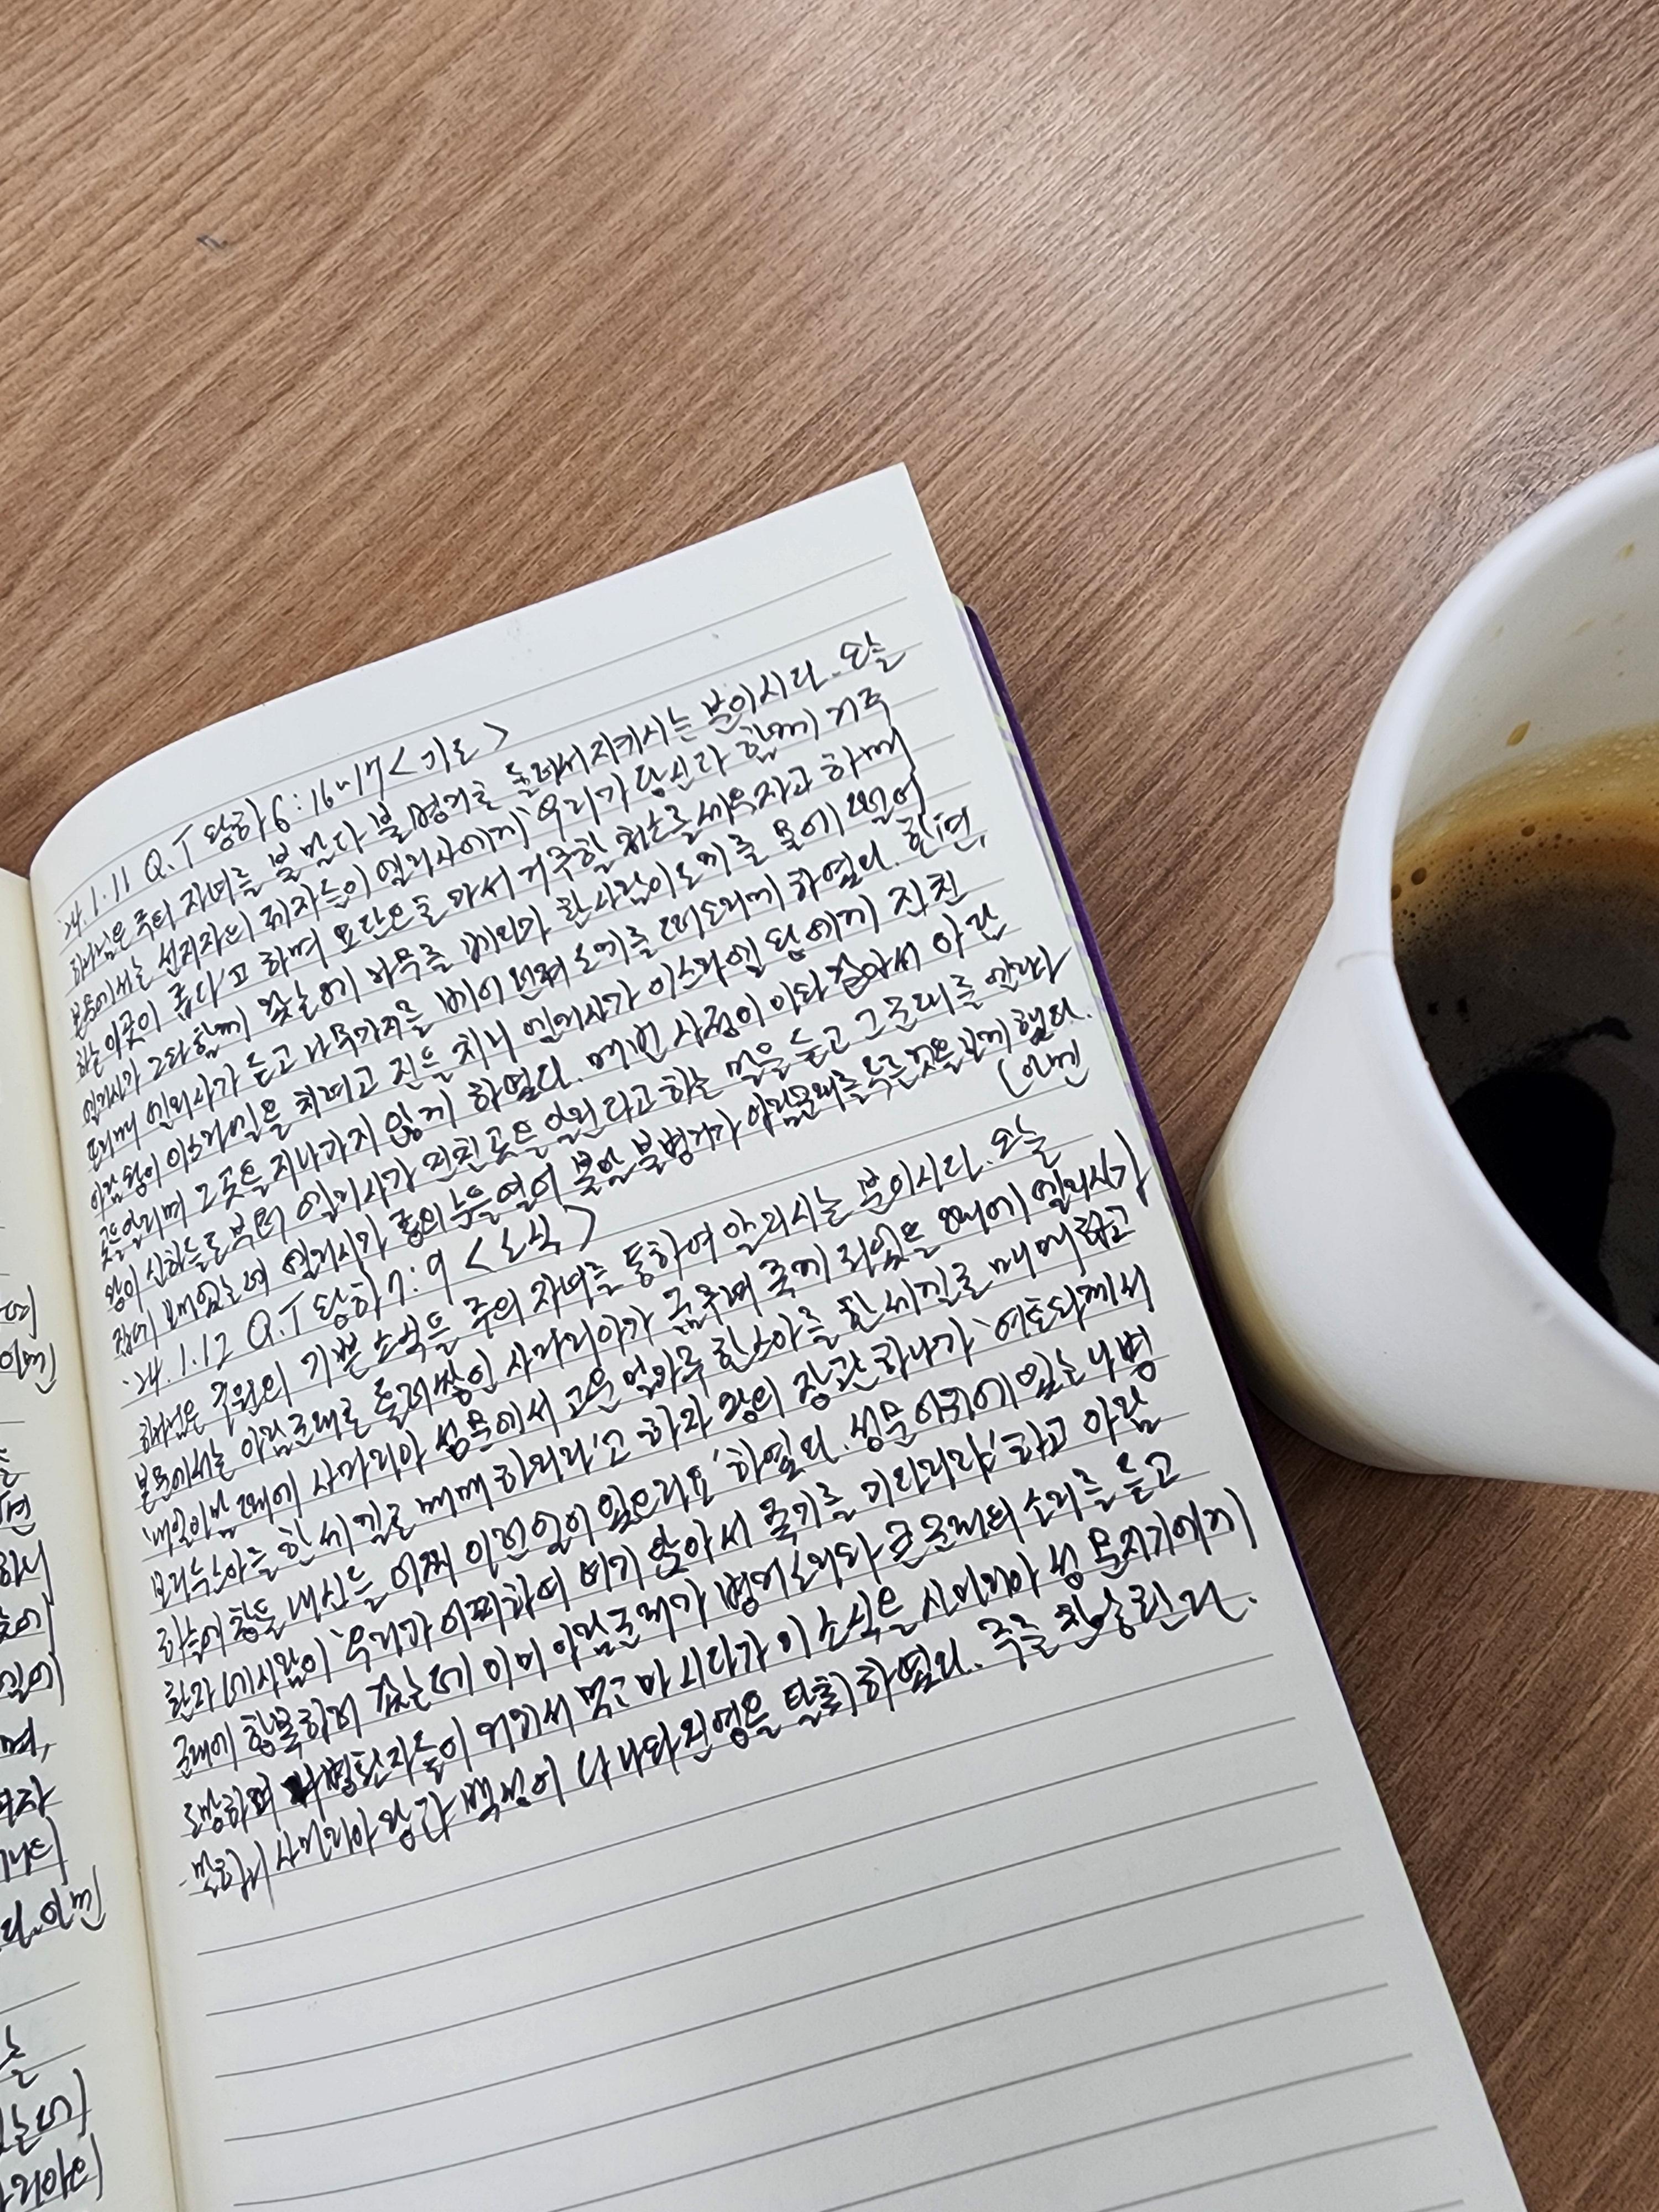 '24. 1. 11 Q.T 왕하 6:16~17 <기도>
하나님은 주의 자녀를 불말과 불병거로 둘러서 지키시는 분이시다. 오늘
본문에서는 선지자의 제자들이 엘리사에게 '우리가 당신과 함께 거주
하는 이곳이 좁다'고 하며 요단으로 가서 거주할 처소를 세우자고 하매
엘리사가 그와 함께 갔는데 나무를 베다가 한 사람이 도끼를 물에 빠뜨려
엘리사가 듣고 나무가지를 베어 던져 도끼를 떠오르게 하였다. 한편,
아람 왕이 이스라엘을 치려고 진을 치니 엘리사가 이스라엘 왕에게 진친
곳을 알리며 그곳을 지나가지 않게 하였다. 매번 사정이 이와 같아서 아람
왕이 신하들로부터 엘리사가 알린다고 하는 말을 듣고 군대를
보냈는데 엘리사가 종의 눈을 열어 불말 불병거가 아람군대를 두른 것을 보게 했다.
아멘
'24. 1. 12 Q.T 왕하 7:9 <소식>
하나님은 구원의 기쁜 소식을 주의 자녀를 통하여 알리시는 분이시다. 오늘
본문에서는 아람군대로 둘러쌓인 사마리아가 굶주려 죽게 되었을 때에 엘리사가
'내일 이맘때에 사마리아 성문에서 고운 밀가루 한 스아를 한 세겔로 매매하고
보리 두 스아를 한 세겔로 매매하리라'고 하자 왕의 장관 하나가 '여호와께서
하늘에 창을 내신들 어찌 이런 일이 있으리요' 하였다. 성문 어귀에 있는 나병
환자 네 사람이 '우리가 어찌하여 여기 앉아서 죽기를 기다리랴' 하고 아람
군대에 항복하러 갔는데 이미 아람군대가 병거소리와 큰 군대의 소리를 듣고
도망하며 나병환자들이 거기서 먹고 마시다가 이 소식을 사마리아 성 문지기에게
말하니 사마리아 왕과 백성이 나와 진영을 탈취하였다. 주를 찬송한다.